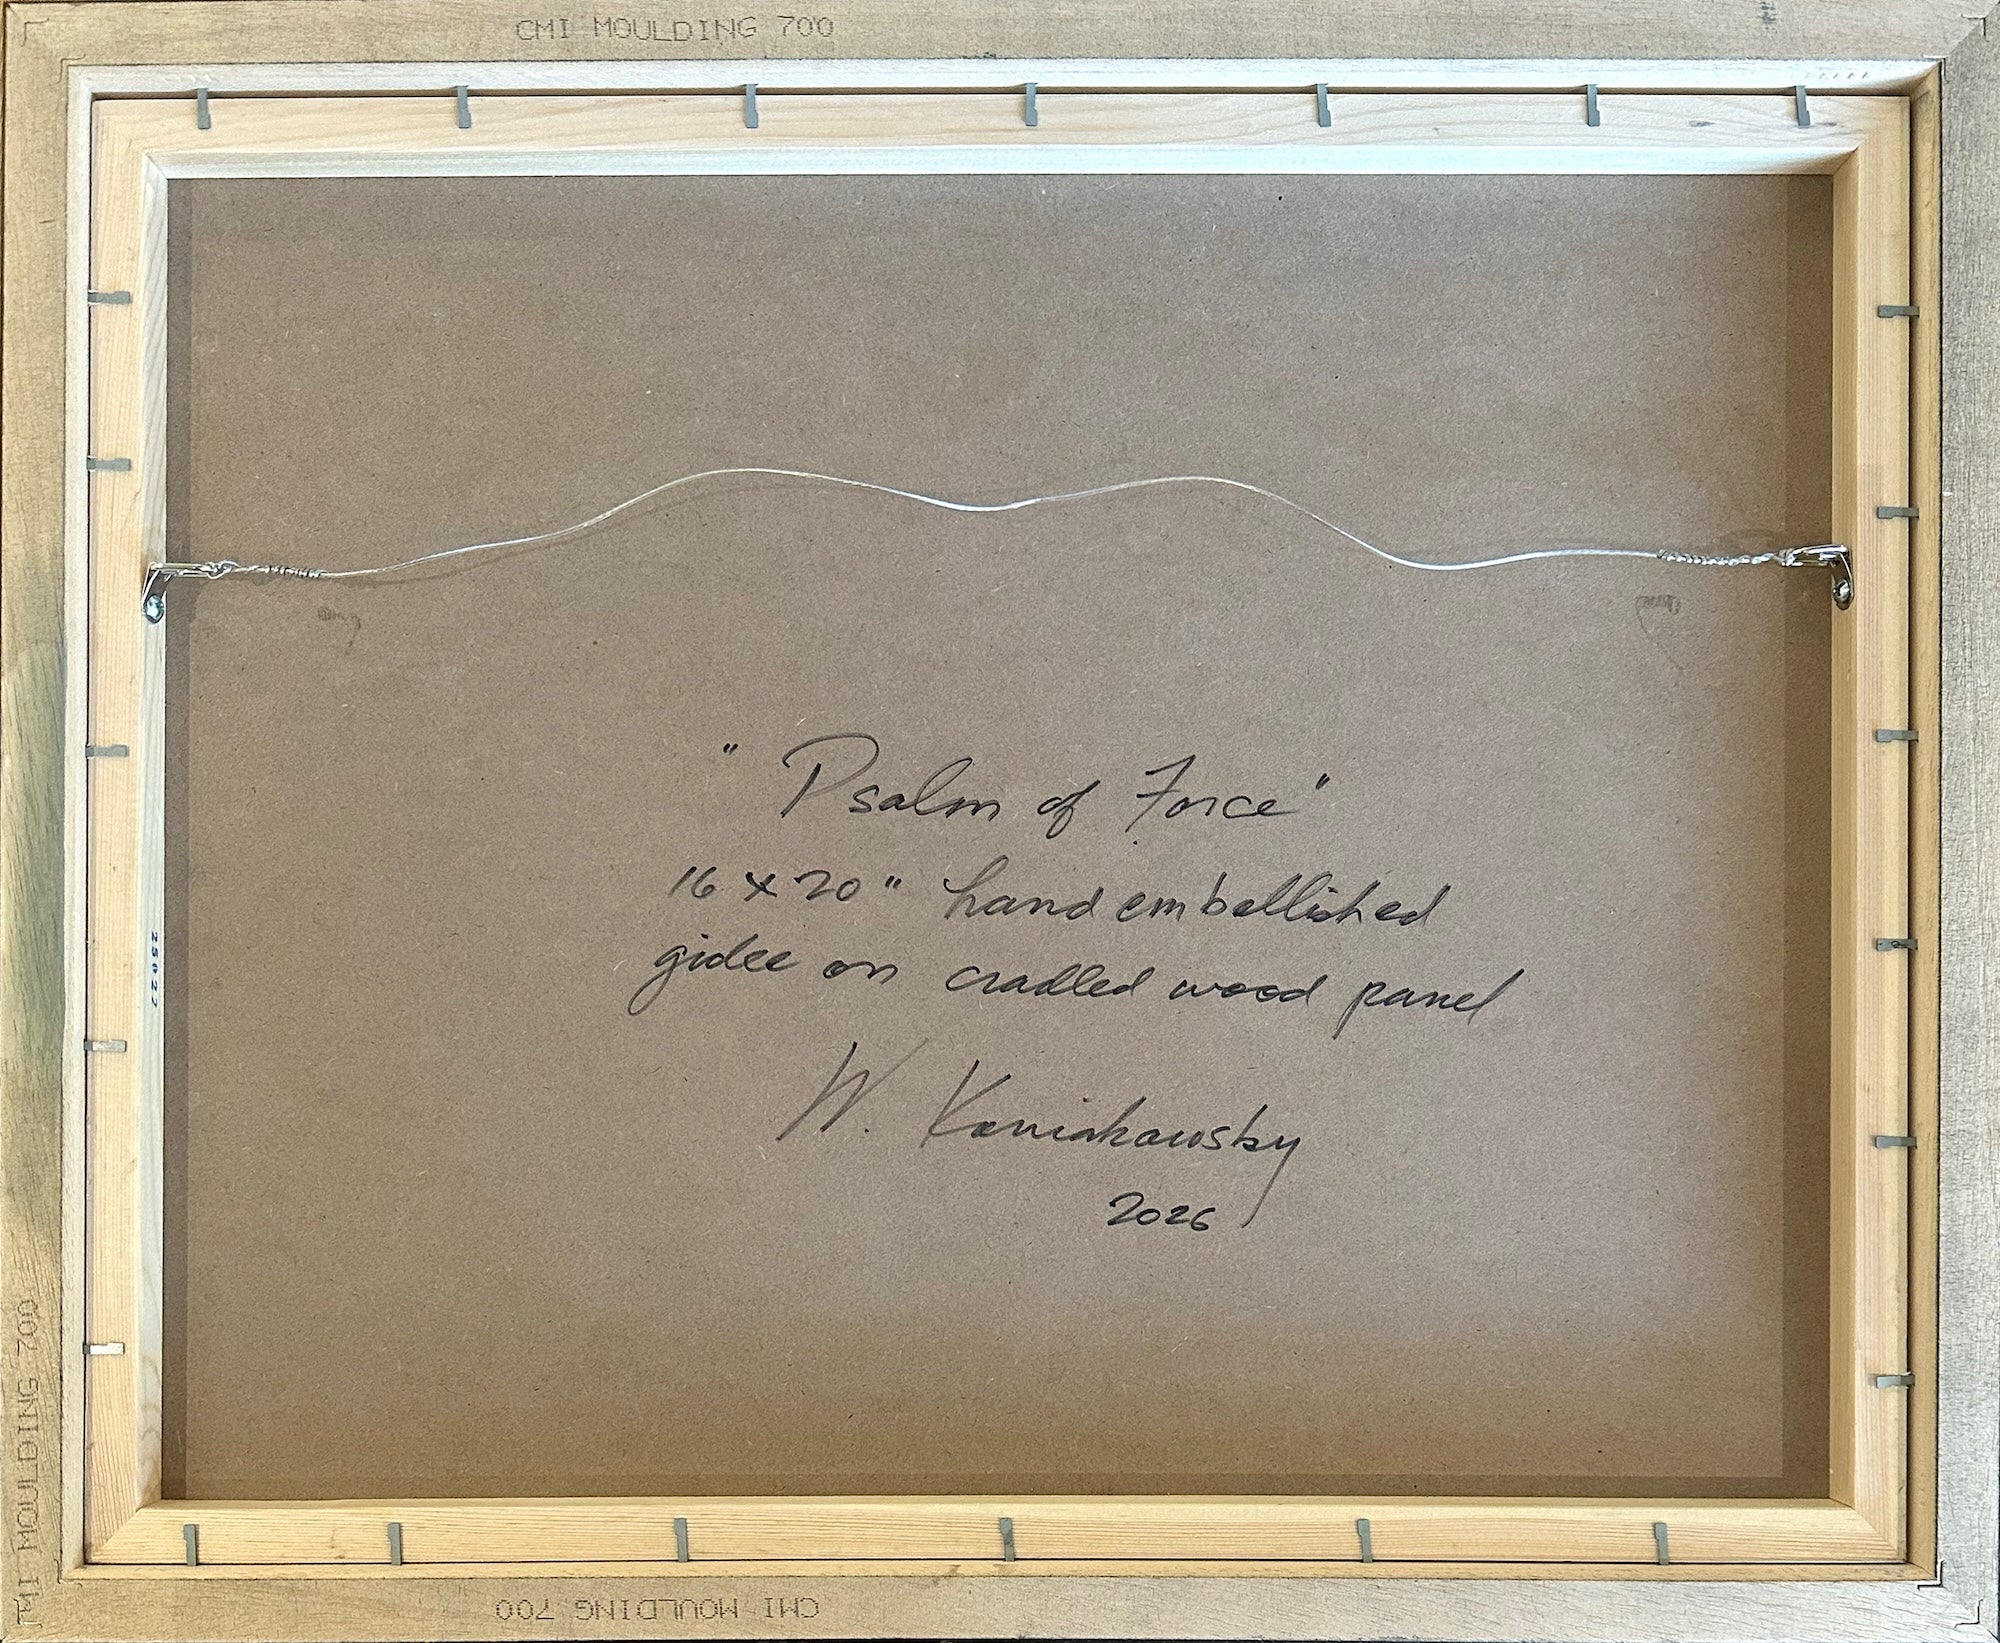 CMI MOULDING 700
"Psalm of Force"
16 x 20" hand embellished
giclee on cradled wood panel
W. Koniakowsky
2026
25027
CMI MOULDING 700
CMI MOULDING 700